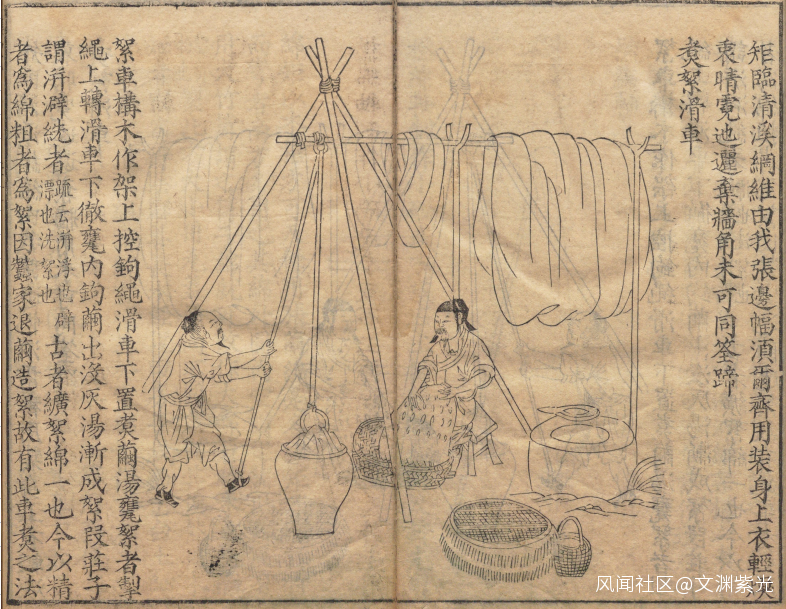 矩臨清溪綱維由我張邊幅須爾齊用裝身上衣輕
衷晴霓也邐棄牆角未可同筌蹄
煑絮滑車
絮車構木作架上控鉤繩滑車下置煑繭湯甕絮者掣
繩上轉滑車下徹甕內鉤繭出沒灰湯漸成絮段莊子
謂洴澼絖者疏云洴浮也澼漂也絖絮也古者纊絮綿一也今以精
者為綿粗者為絮因蠶家退繭造絮故有此車煑之法
风闻社区@文渊紫光